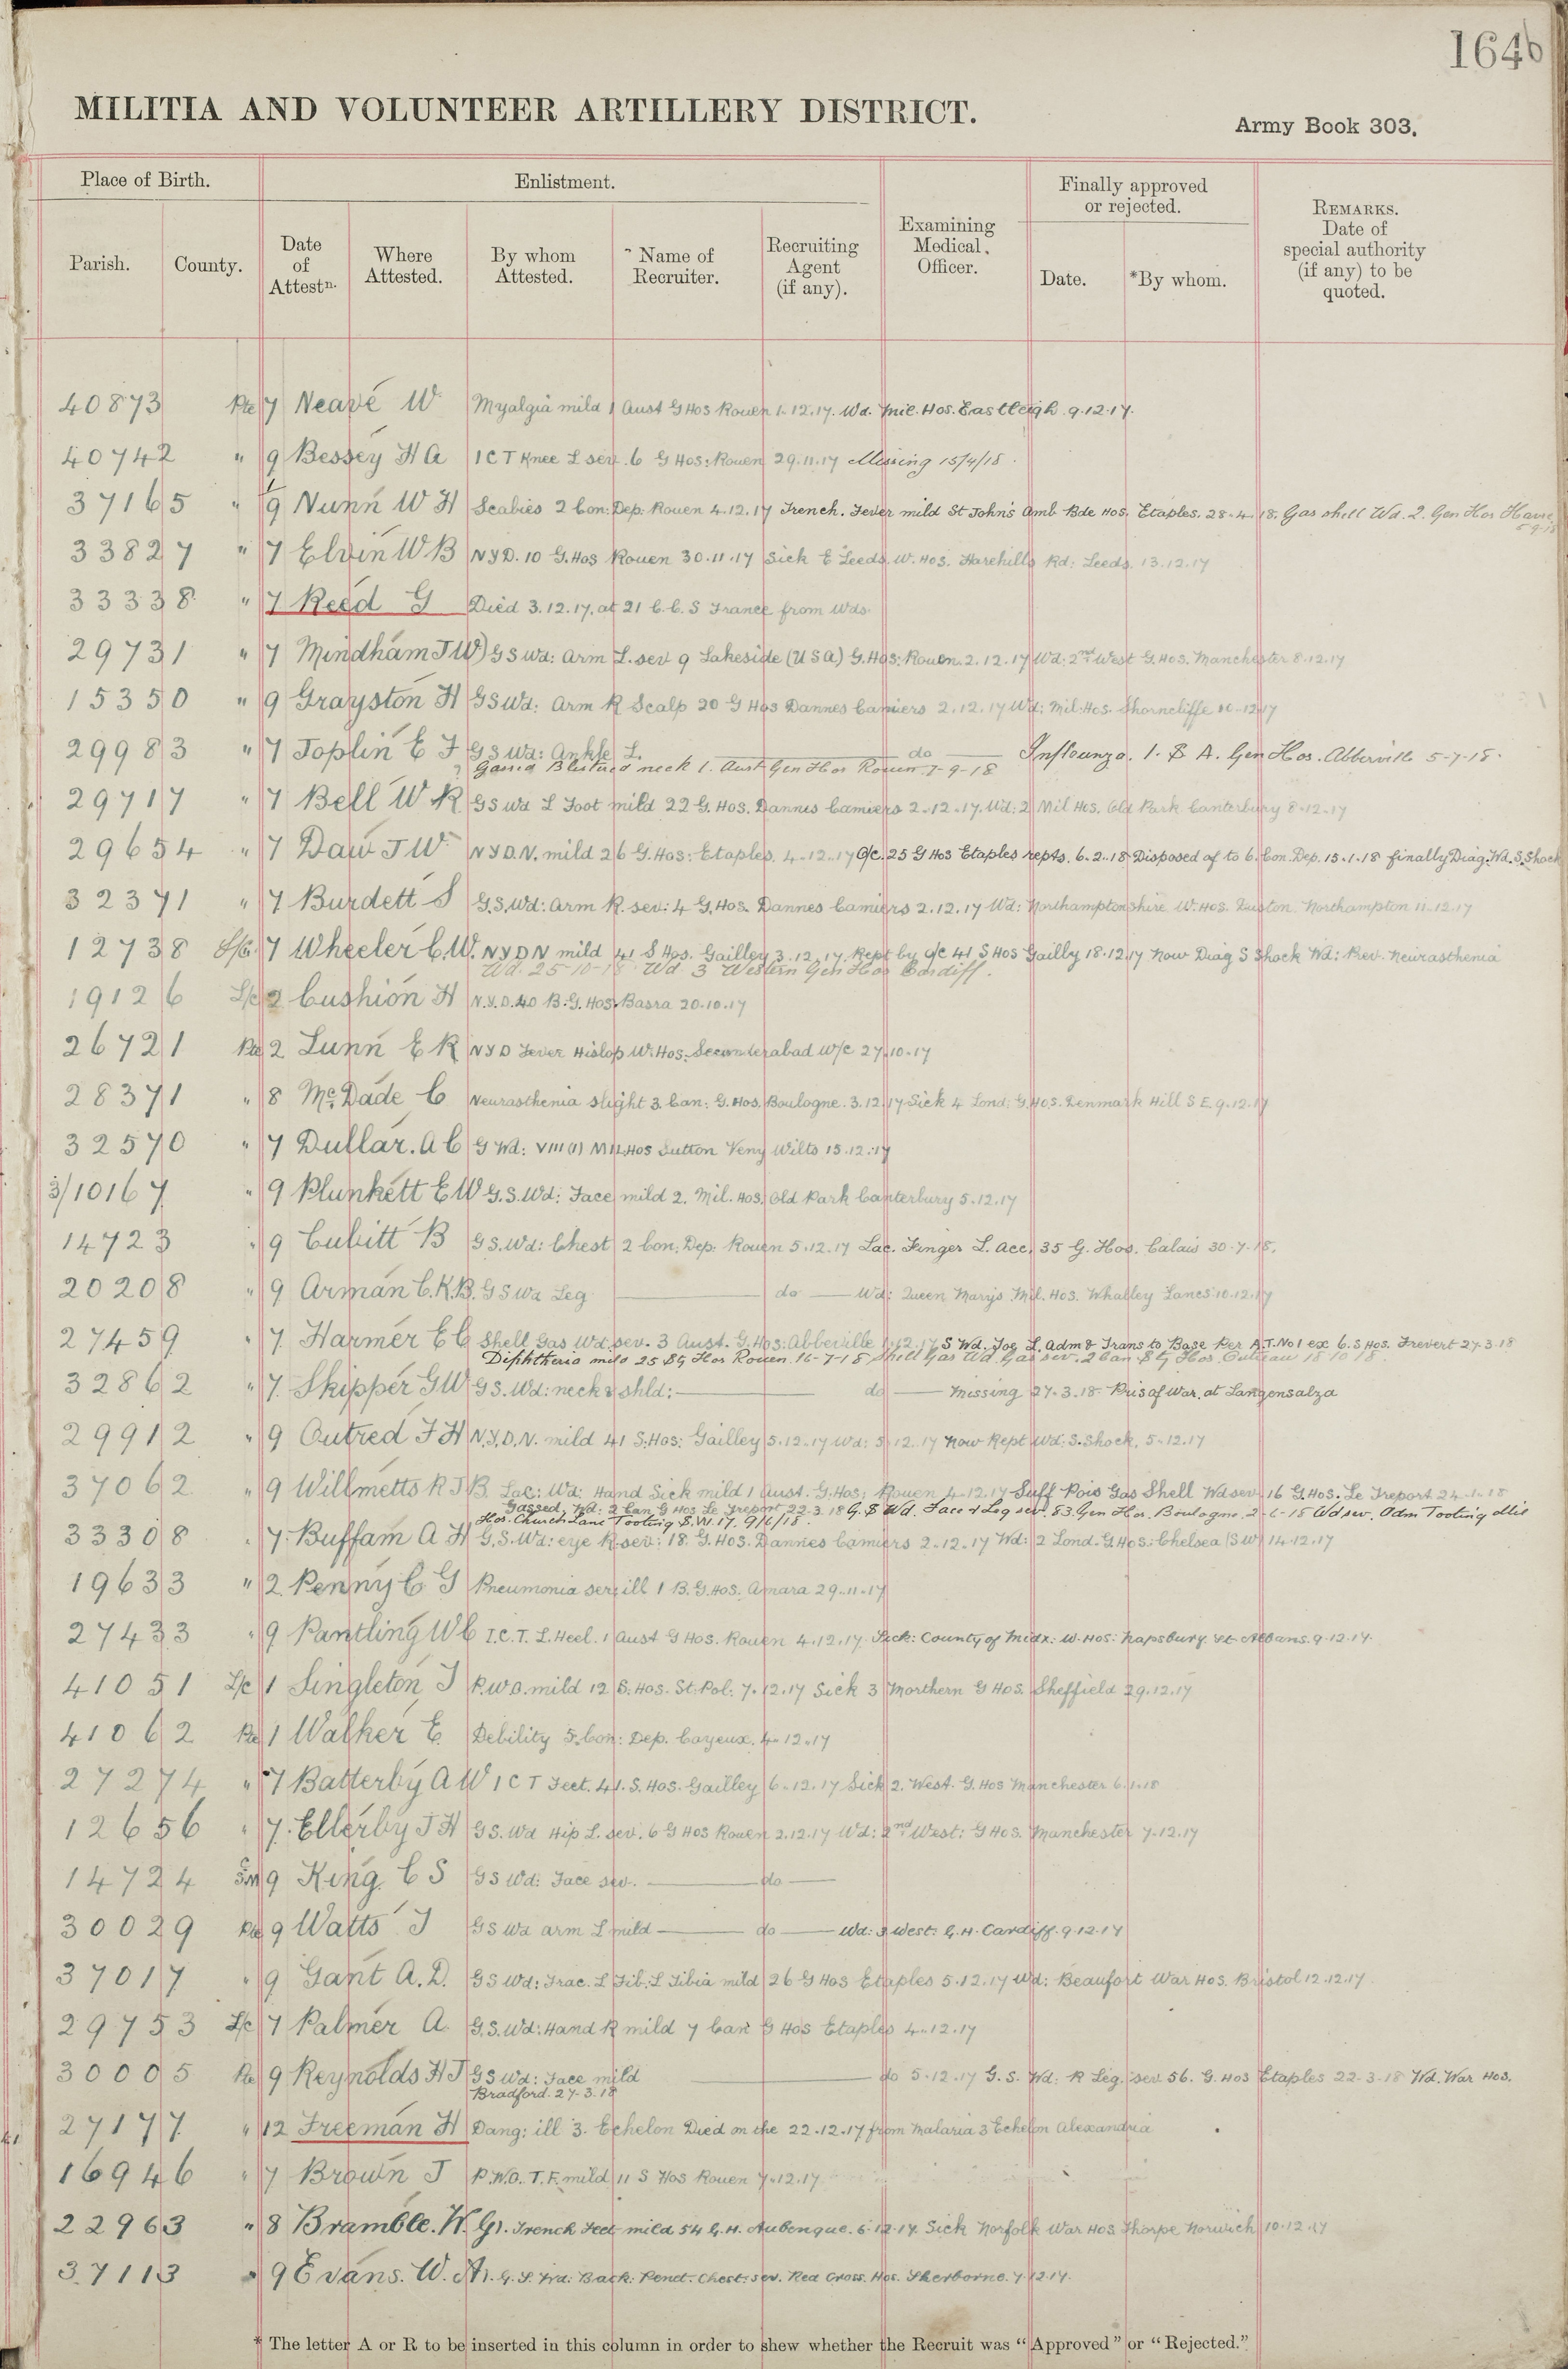 164b
MILITIA AND VOLUNTEER ARTILLERY DISTRICT.
Army Book 303.
Place of Birth.
Enlistment.
Finally approved or rejected.
Parish.
County.
Date of Attestn.
Where Attested.
By whom Attested.
Name of Recruiter.
Recruiting Agent (if any).
Examining Medical Officer.
Date.
*By whom.
REMARKS. Date of special authority (if any) to be quoted.
40873 Pte 7 Neave W Myalgia mild 1 Aust G Hos Rouen 1.12.17. Wd. Mil. Hos. Eastleigh 9.12.17.
40742 " 9 Bessey H A I C T Knee L sev. 6 G Hos: Rouen 29.11.17 Missing 15/4/18.
37165 " 9 Nunn W H Scabies 2 Con: Dep. Rouen 4.12.17 Trench. Fever mild St John's Amb Bde Hos. Etaples. 28.4.18. Gas shell Wd. 2. Gen Hos Havre
33827 " 7 Elvin W B N Y D. 10 G. Hos Rouen 30.11.17 Sick E Leeds. W. Hos. Harehills Rd: Leeds. 13.12.17
33338 " 7 Reed G Died 3.12.17. at 21 C.C.S France from Wds.
29731 " 7 Mindham J W G S Wd: Arm L. sev 9 Lakeside (USA) G. Hos: Rouen. 2.12.17 Wd: 2nd West G. Hos. Manchester 8.12.17
15350 " 9 Grayston H G S Wd: Arm R Scalp 20 G Hos Dannes Camiers 2.12.17 Wd: Mil: Hos. Shorncliffe 10-12-17
29983 " 7 Joplin E F G S Wd: Ankle L. do Influenza. 1. S A. Gen Hos. Abbeville 5-7-18.
Gassed Blistered neck 1. Aust Gen Hos Rouen 7-9-18
29717 " 7 Bell W R G S Wd L Foot mild 22 G. Hos. Dannes Camiers 2.12.17. Wd: 2 Mil Hos. Old Park Canterbury 8.12.17
29654 " 7 Daw J W N Y D. N. mild 26 G. Hos: Etaples. 4.12.17 O/c. 25 G Hos Etaples repts. 6.2.18 Disposed of to 6. Con. Dep. 15.1.18 finally Diag. Wd. S. Shock
32371 " 7 Burdett S G. S. Wd: Arm R. sev: 4 G. Hos. Dannes Camiers 2.12.17 Wd: Northamptonshire W. Hos. Duston. Northampton 11.12.17
12738 7 Wheeler C. W. N Y D N mild 41 S Hos. Gailley 3.12.17. Rept by O/c 41 S Hos Gailly 18.12.17 Now Diag S Shock Wd: Prev. Neurasthenia
Wd. 25-10-18 Wd 3 Western Gen Hos Cardiff.
19126 L/c 2 Cushion H N. Y. D. 40 B. G. Hos. Basra 20.10.17
26721 Pte 2 Lunn E R N Y D Fever Hislop W. Hos. Secunderabad W/e 27.10.17
28371 " 8 McDade C Neurasthenia slight 3. Can: G. Hos. Boulogne. 3.12.17 Sick 4 Lond: G. Hos. Denmark Hill S E. 9.12.17
32570 " 7 Dullar. A C G Wd: VIII (1) Mil. Hos Sutton Veny Wilts 15.12.17
3/10167 " 9 Plunkett E W G. S. Wd: Face mild 2. Mil. Hos. Old Park Canterbury 5.12.17
14723 " 9 Cubitt B G S. Wd: Chest 2 Con. Dep. Rouen 5.12.17 Lac. Finger L. acc. 35 G. Hos. Calais 30.7.18.
20208 " 9 Arman C. K. B. G S Wd Leg do Wd: Queen Marys Mil. Hos. Whalley Lancs 10.12.17
27459 " 7. Harmer E C Shell Gas Wd sev. 3 Aust. G. Hos: Abbeville 1.12.17 S Wd. Toe L. Adm & Trans to Base Per A.T. No 1 ex 6. S Hos. Frevent 27.3.18
Diphtheria mild 25 G Hos Rouen. 16-7-18 Shell Gas Wd. Gas sev. 2 Can. G Hos.
32862 " 7. Skipper G W G S. Wd: neck & shld: do Missing 27.3.18. Pris of War. at Langensalza
29912 " 9 Outred F H N. Y. D. N. mild 41 S. Hos: Gailley 5.12.17 Wd: 5.12.17 Now Rept Wd: S. Shock. 5.12.17
37062 " 9 Willmetts R J B. Lac: Wd: Hand Sick mild 1 Aust. G. Hos; Rouen 4.12.17 Suff Pois Gas Shell Wd sev. 16 G. Hos. Le Treport 24.1.18
Gassed. Wd: 2 Can G Hos Le Treport 22.3.18 G. S Wd. Face & Leg sev. 83. Gen Hos. Boulogne 2-6-18 Wd sev. Adm Tooting Mil
Hos. Church Lane Tooting S. W. 17. 9/6/18.
33308 " 7. Buffam A H G. S. Wd: eye R. sev: 18. G. Hos. Dannes Camiers 2.12.17 Wd: 2 Lond. G Hos: Chelsea (S W) 14.12.17
19633 " 2. Penny C G Pneumonia ser; ill 1 B. G. Hos. Amara 29.11.17
27433 " 9 Pantling W C I. C. T. L. Heel. 1 Aust G Hos. Rouen 4.12.17. Sick: County of Midx: W. Hos: Napsbury. St. Albans. 9.12.17.
41051 L/c 1 Singleton J P. U. O. mild 12 S. Hos. St. Pol. 7.12.17 Sick 3 Northern G Hos. Sheffield 29.12.17
41062 Pte 1 Walker E. Debility 5. Con: Dep. Cayeux. 4.12.17
27274 " 7 Batterby A W I C T Feet. 41. S. Hos. Gailley 6.12.17 Sick 2. West. G. Hos Manchester 6.1.18
12656 " 7. Ellerby J H G S. Wd Hip L. sev. 6 G Hos Rouen 2.12.17 Wd: 2nd West: G Hos. Manchester 7.12.17
14724 9 King. C S G S Wd: Face sev. do
30029 Pte 9 Watts J G S Wd arm L mild do Wd: 3 West: G. H. Cardiff. 9.12.17
37017 " 9 Gant A. D. G S Wd: Frac. L Fib. L Tibia mild 26 G Hos Etaples 5.12.17 Wd: Beaufort War Hos. Bristol 12.12.17
29753 L/c 7 Palmer A. G. S. Wd: Hand R mild 7 Can G Hos Etaples 4.12.17
30005 Pte 9 Reynolds H J G S Wd: Face mild do 5.12.17 G. S. Wd: R Leg. sev 56. G. Hos Etaples 22.3.18 Wd. War Hos.
Bradford. 27.3.18
27177. " 12 Freeman H Dang: ill 3. Echelon Died on the 22.12.17 from Malaria 3 Echelon Alexandria
16946 " 7 Brown J P. U. O. T. F. mild 11 S Hos Rouen 7.12.17
22963 " 8 Bramble. W. G. Trench Feet mild 54 G. H. Aubengue. 6.12.17. Sick Norfolk War Hos Thorpe Norwich 10.12.17
37113 " 9 Evans. W. A. G. S. Wd: Back. Penet: Chest: sev. Red Cross. Hos. Sherborne. 7.12.17.
* The letter A or R to be inserted in this column in order to shew whether the Recruit was “Approved” or “Rejected.”